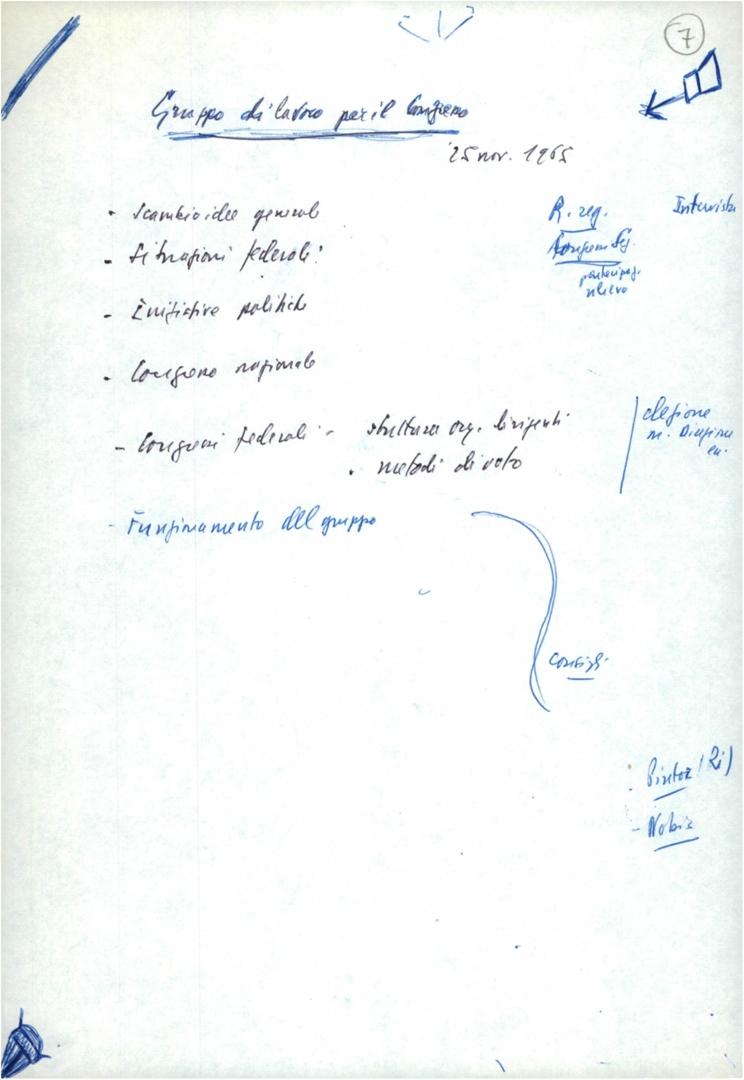 7
Gruppo di lavoro per il Congresso
25 nov. 1965
- Scambio idee generale
- Situazioni federali:
- Iniziative politiche
- Congresso nazionale
- Congressi federali - struttura org. dirigenti
. metodi di voto
- Funzionamento del gruppo
R. reg.
Intervista
rilievo
elezione
consigli
- Pintor (Ri)